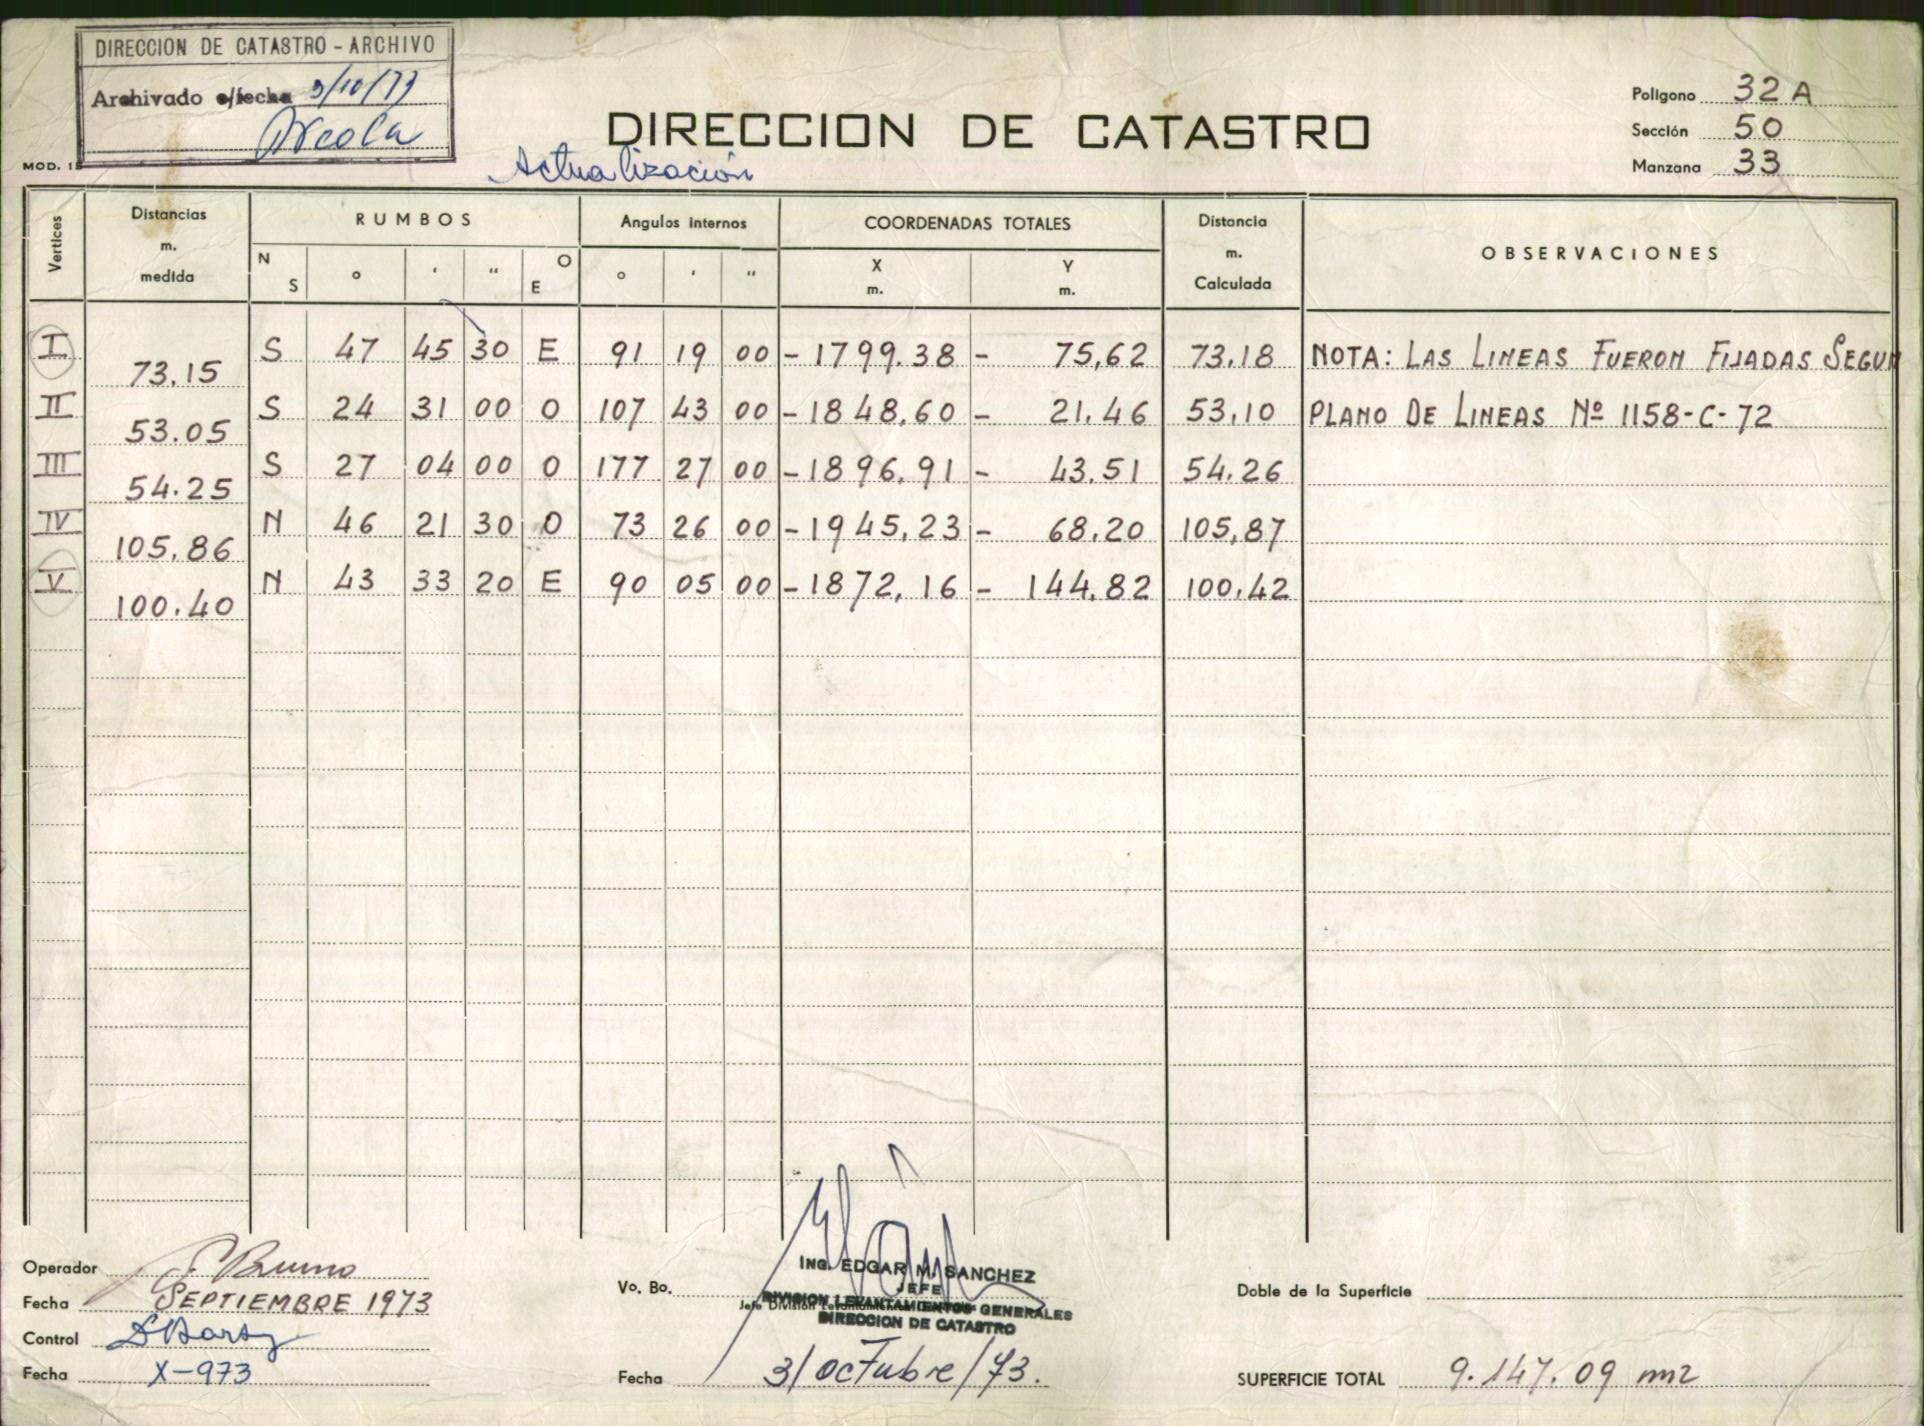 DIRECCION DE CATASTRO - ARCHIVO
Archivado s/fecha 3/10/73
DIRECCION DE CATASTRO
Actualización
Polígono 32 A
Sección 50
Manzana 33
MOD. 1
Vertices
Distancias m. medida
RUMBOS
N S ° ' " O E
Angulos internos
° ' "
COORDENADAS TOTALES
X m. Y m.
Distancia m. Calculada
OBSERVACIONES
I 73.15 S 47 45 30 E 91 19 00 -1799.38 - 75,62 73.18 NOTA: LAS LINEAS FUERON FIJADAS SEGUN
II 53.05 S 24 31 00 O 107 43 00 -1848,60 - 21.46 53,10 PLANO DE LINEAS Nº 1158-C-72
III 54.25 S 27 04 00 O 177 27 00 -1896,91 - 43.51 54.26
IV 105,86 N 46 21 30 O 73 26 00 -1945,23 - 68.20 105,87
V 100.40 N 43 33 20 E 90 05 00 -1872,16 - 144.82 100.42
Operador Bruno
Fecha SEPTIEMBRE 1973
Control
Fecha X-973
Vo. Bo.
ING. EDGAR M. SANCHEZ
JEFE
Jefe División Levantamientos
DIVISION LEVANTAMIENTOS GENERALES
DIRECCION DE CATASTRO
Fecha 3/octubre/73.
Doble de la Superficie
SUPERFICIE TOTAL 9.147.09 m2